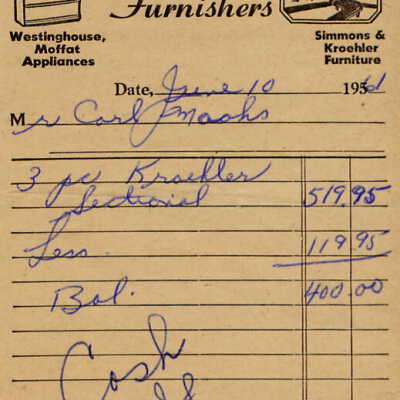 Furnishers
Westinghouse,
Moffat
Appliances
Simmons &
Kroehler
Furniture
Date, June 10 195
Mr Carl Maahs
3 pc Kroehler
Sectional 519.95
Less. 119 95
Bal. 400.00
Cash